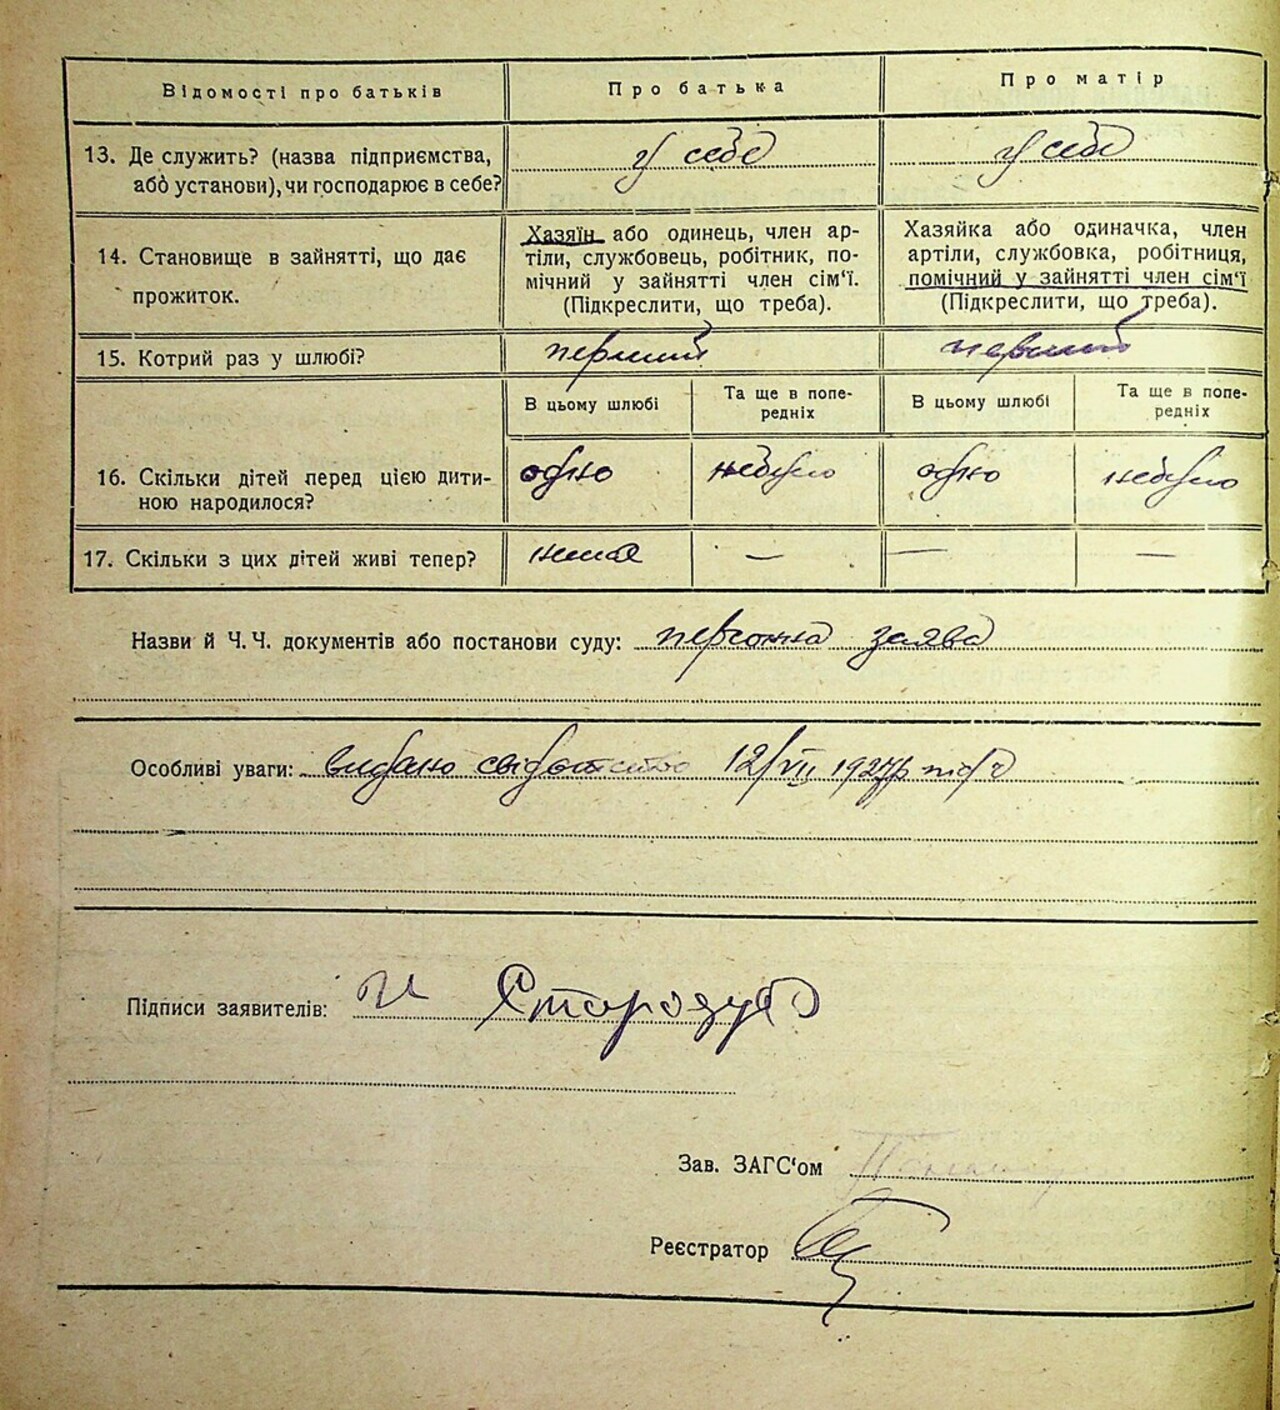 Відомості про батьків Про батька Про матір
13. Де служить? (назва підприємства, у себе у себе
або установи), чи господарює в себе?
14. Становище в зайнятті, що дає прожиток.
Хазяїн або одинець, член ар-
тіли, службовець, робітник, по-
мічний у зайнятті член сім‘ї.
(Підкреслити, що треба).
Хазяйка або одиначка, член
артіли, службовка, робітниця,
помічний у зайнятті член сім‘ї
(Підкреслити, що треба).
15. Котрий раз у шлюбі? перший перший
В цьому шлюбі Та ще в попе-
редніх В цьому шлюбі Та ще в попе-
редніх
16. Скільки дітей перед цією дити-
ною народилося? одно небуло одно небуло
17. Скільки з цих дітей живі тепер? нема — — —
Назви й Ч. Ч. документів або постанови суду: персонна заява
Особливі уваги: видано свідотство 12/VII 1927р
Підписи заявителів: И Старозуб
Зав. ЗАГС‘ом
Реєстратор